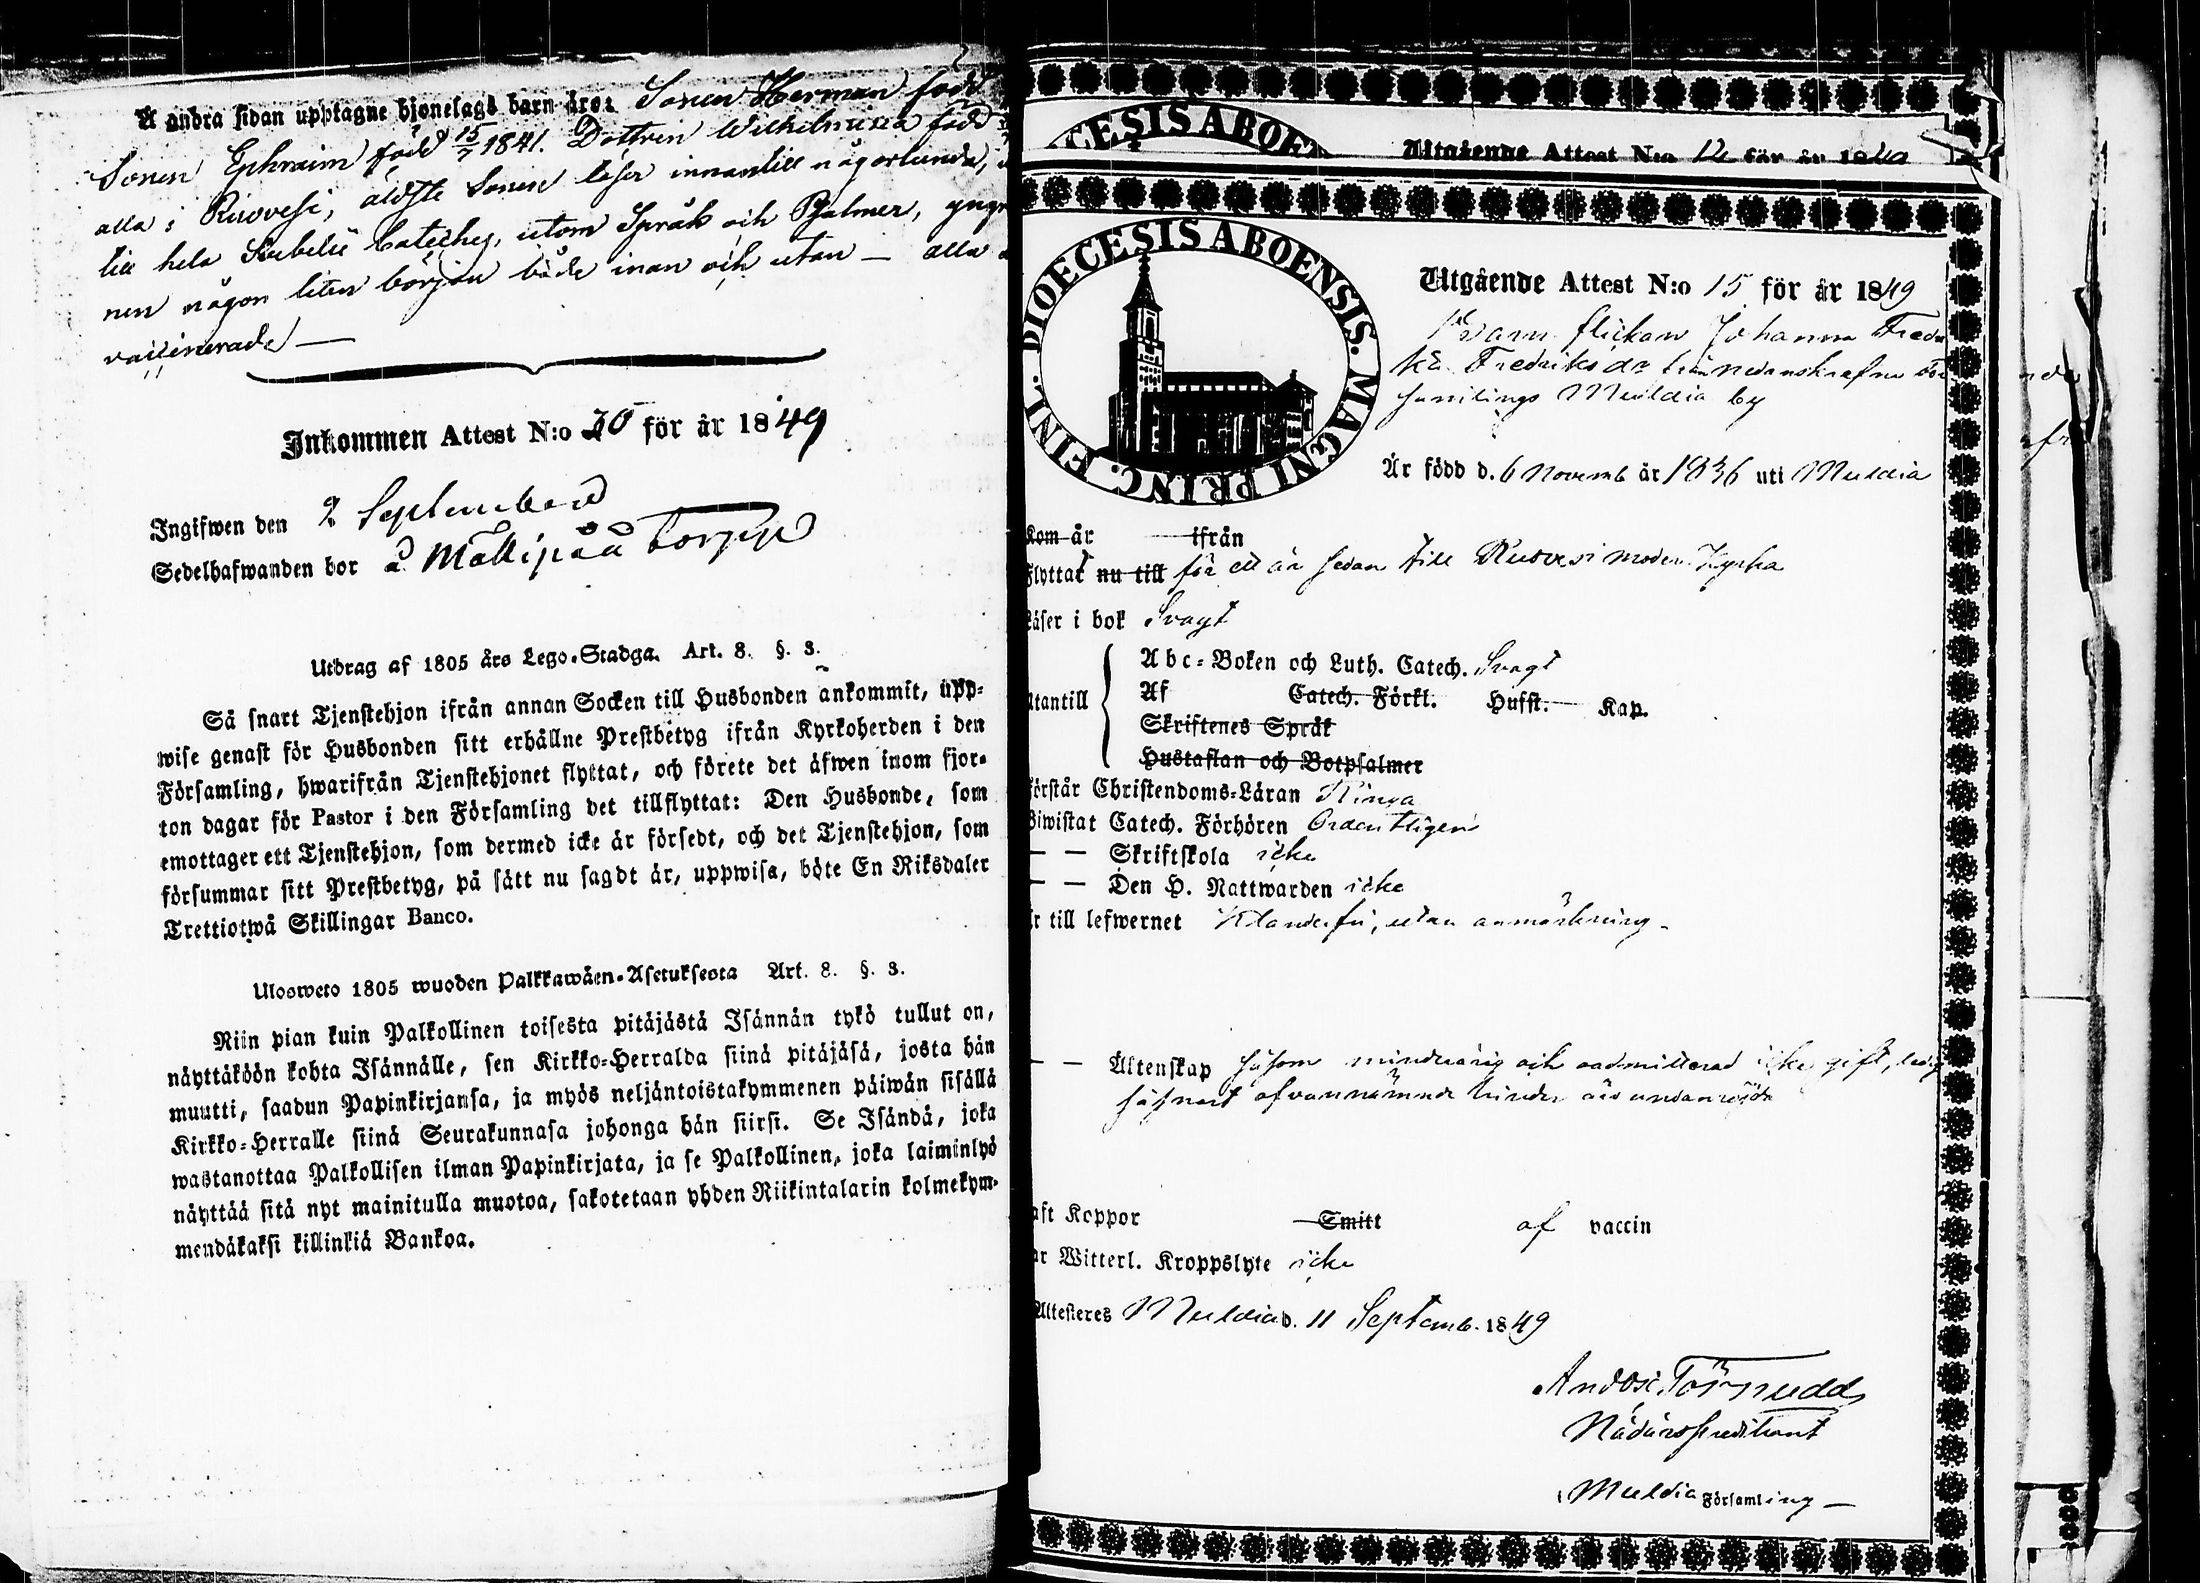 Å andra sidan upptagne hjonelags barn äro: Sonen Herman född
Sonen Ephraim född 15/7 1841. Dottren Wilhelmina född
alla i Ruovesi, äldste Sonen läser innantill någorlunda,
till hela Svebelii Cateches, utom Språk och Psalmer, yngre
nen någon liten början både inan och utan — alla
vaccinerade —
Inkommen Attest N:o 30 för år 1849
Ingifwen den 2 September
Sedelhafwanden bor å Mattipää Torpp
Utdrag af 1805 års Lego-Stadga. Art. 8. §. 3.
Så snart Tjenstehjon ifrån annan Socken till Husbonden ankommit, upp-
wise genast för Husbonden sitt erhållne Prestbetyg ifrån Kyrkoherden i den
Församling, hwarifrån Tjenstehjonet flyttat, och förete det äfwen inom fjor-
ton dagar för Pastor i den Församling det tillflyttat: Den Husbonde, som
emottager ett Tjenstehjon, som dermed icke är försedt, och det Tjenstehjon, som
försummar sitt Prestbetyg, på sätt nu sagdt är, uppwisa, böte En Riksdaler
Trettiotwå Skillingar Banco.
Ulosweto 1805 wuoden Palkkawäen-Asetuksesta Art. 8. §. 3.
Niin pian kuin Palkollinen toisesta pitäjästä Isännän tykö tullut on,
näyttäköön kohta Isännälle, sen Kirkko-Herralda siinä pitäjäsä, josta hän
muutti, saadun Papinkirjansa, ja myös neljäntoistakymmenen päiwän sisällä
Kirkko-Herralle siinä Seurakunnasa johonga hän siirsi. Se Isändä, joka
wastanottaa Palkollisen ilman Papinkirjata, ja se Palkollinen, joka laiminlyö
näyttää sitä nyt mainitulla muotoa, sakotetaan yhden Riikintalarin kolmekym-
mendäkaksi killinkiä Bankoa.
CESIS ABOEN
Utgående Attest N:o 12 för år 18
DIOECESIS ABOENSIS. MAGNI PRINC. FINL.
Utgående Attest N:o 15 för år 1849
flickan Johanna Fredri
ka Fredriksdr från nedanskrefne För
samlings Muldia by
Är född d. 6 Novemb år 1836 uti Muldia
Kom år ifrån
Flyttat nu till för ett år sedan till Ruovesi moder Kyrka
Läser i bok Svagt
Utantill
Abc-Boken och Luth. Catech. Svagt
Af Catech. Förkl. Hufst. Kap.
Skriftenes Språk
Hustaflan och Botpsalmer
Förstår Christendoms-Läran Ringa
Biwistat Catech. Förhören Ordentligen
— — Skriftskola icke
— — Den H. Nattwarden icke
är till lefwernet Klanderfri, utan anmärkning.
— — Äktenskap såsom minderårig och oadmitterad icke gift, ledig
så snart ofvannämnde hinder äro undanröjda
aft Koppor Smitt af vaccin
ar Witterl. Kroppslyte icke
Attesteres Muldia d. 11 Septemb. 1849
Törnudd
Nådårspredikant
i Muldia Församling —